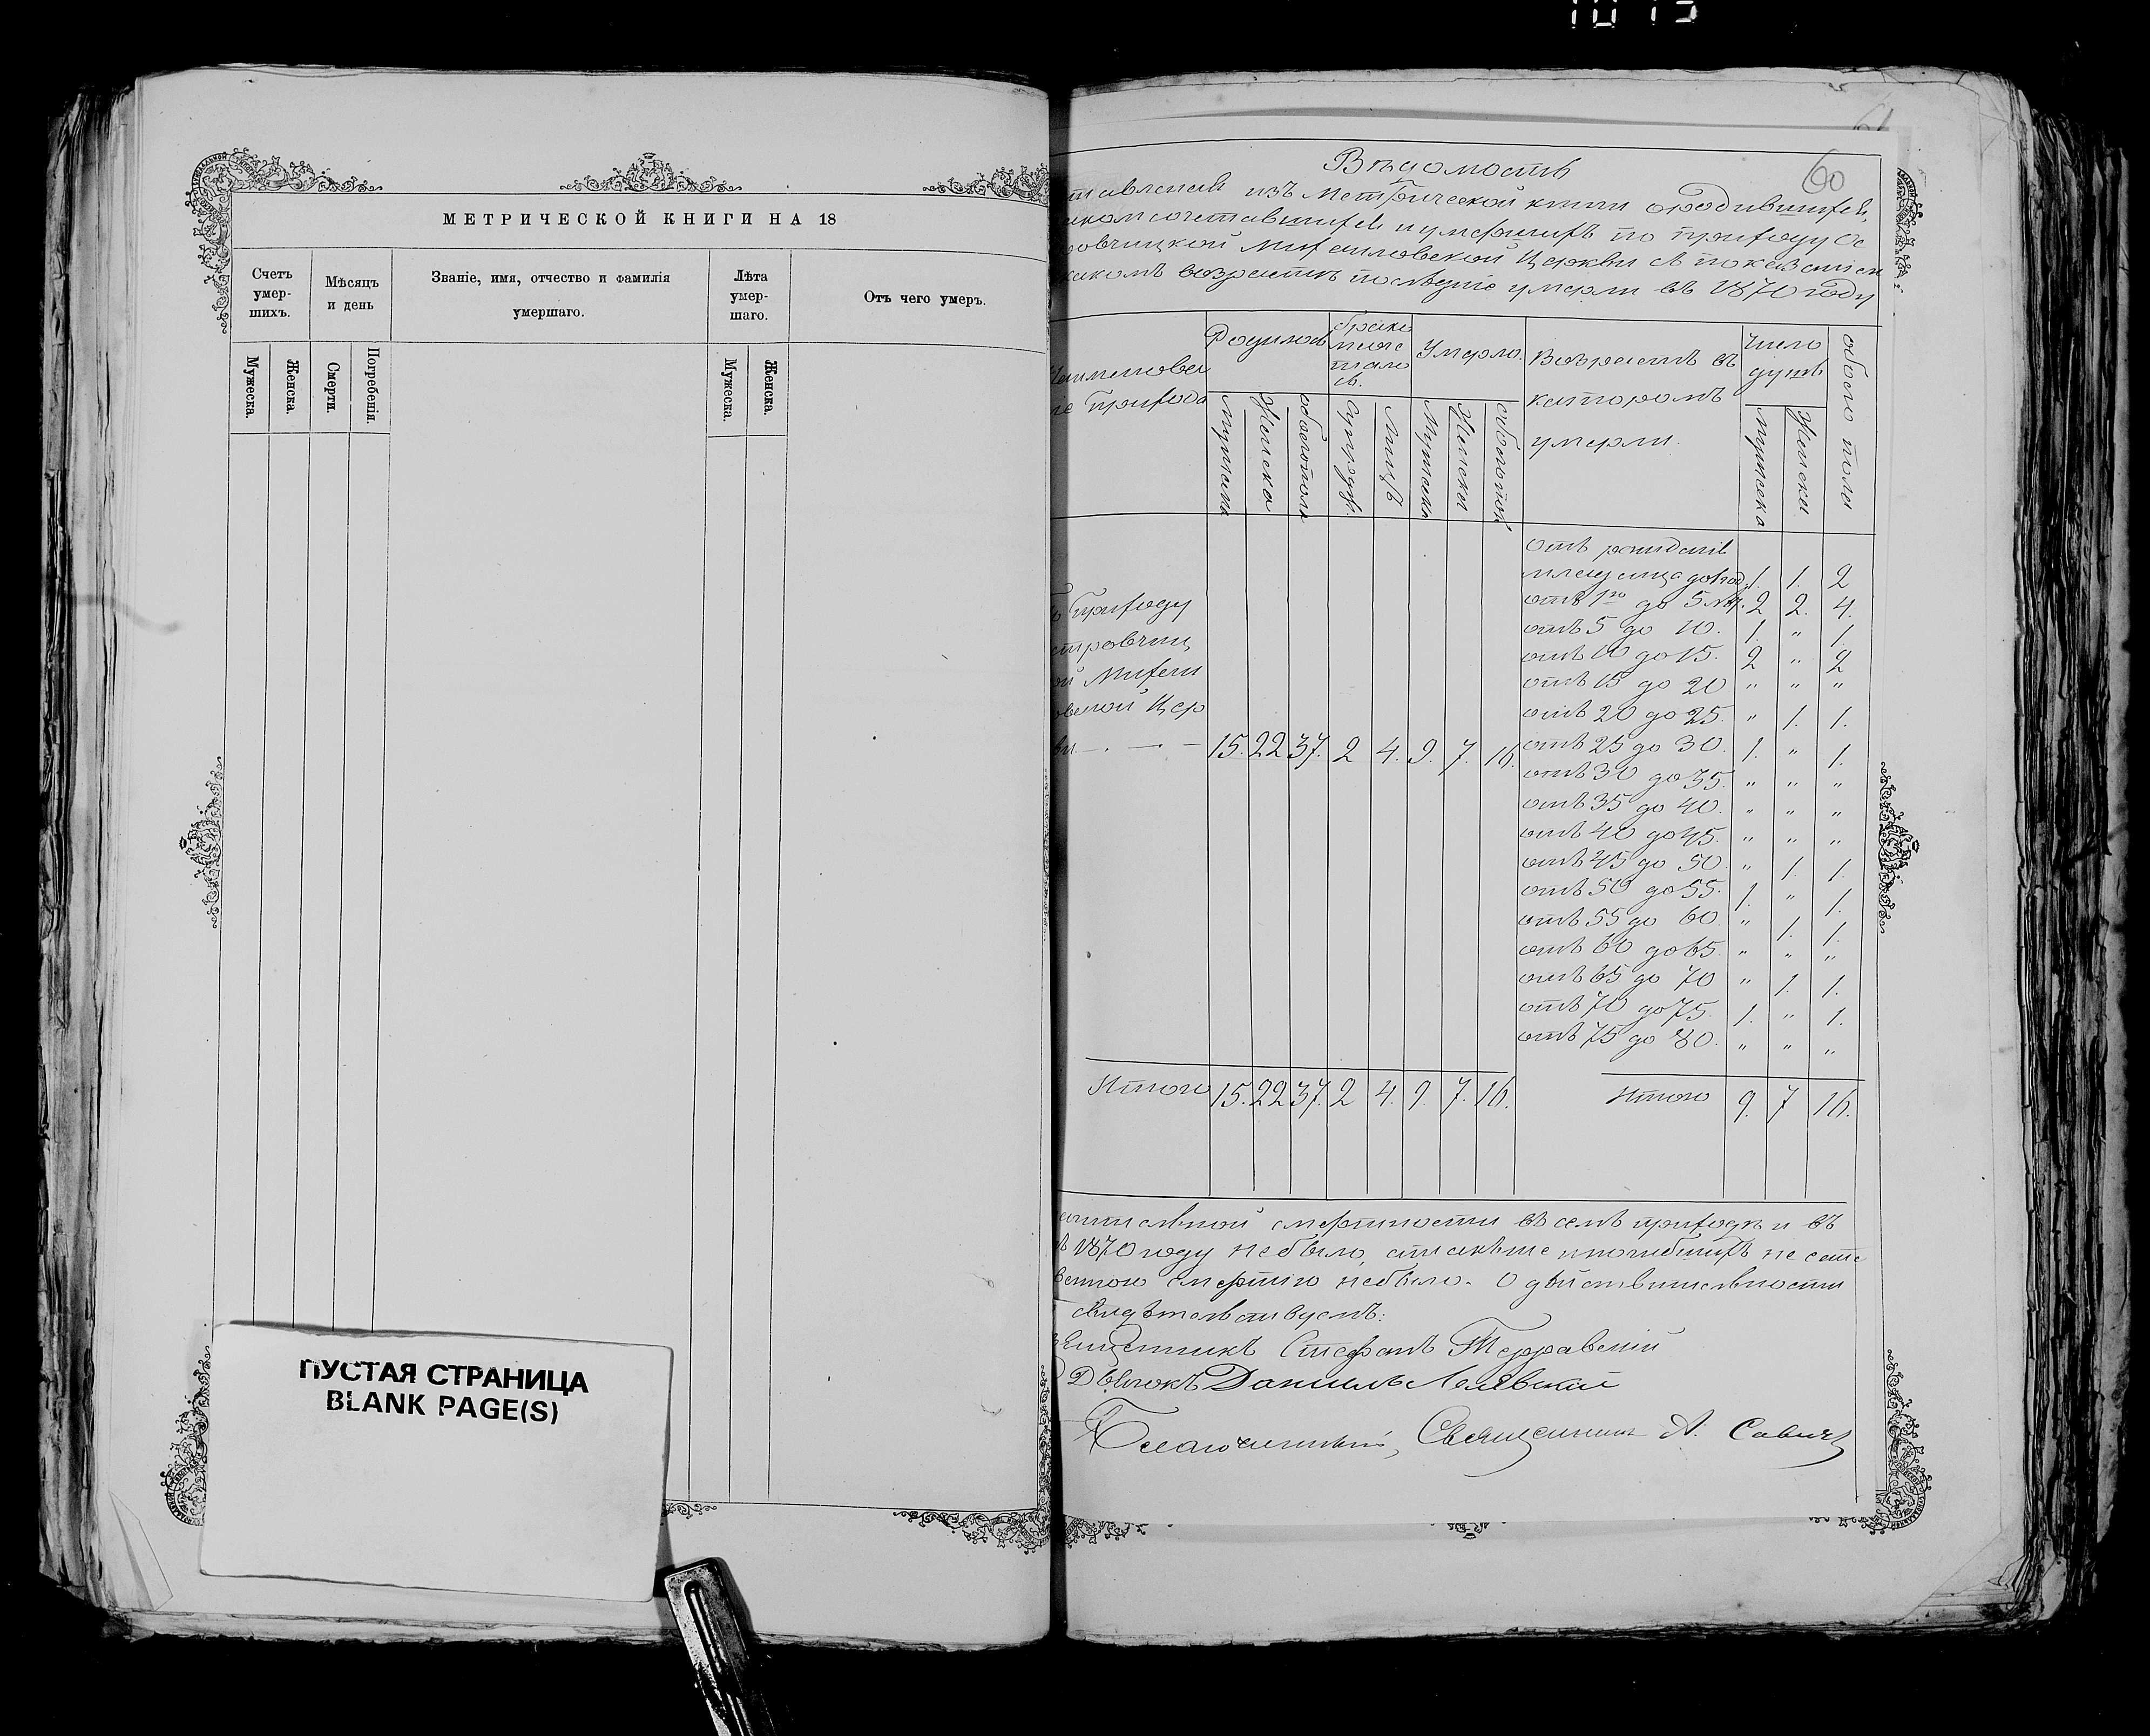 1015
МЕТРИЧЕСКОЙ КНИГИ НА 18
Счетъ умер-шихъ.
Мѣсяцъ и день
Званіе, имя, отчество и фамилія умершаго.
Лѣта умер-шаго.
Отъ чего умеръ.
Мужеска.
Женска.
Смерти.
Погребенія.
Мужеска.
Женска.
ПУСТАЯ СТРАНИЦА
BLANK PAGE(S)
60
Вѣдомость
изъ Метрической книги о родившихся,
сочетавшихся и умершихъ по приходу Ос
Михаиловской Церкви съ показаніем
какомъ возрастѣ послѣдніе умерли въ 1870 году
Родилось
Умерло.
Возрастъ въ которомъ умерли.
Число душъ
обоего пола
прихода
Мужеска
Женска
обоего пола
Супруж.
Лицъ
Мужеска
Женска
обоего пол
Мужеска
Женска
отъ рожденія
до 1 год. 1. 1. 2
отъ 1го до 5 2 2. 4.
отъ 5 до 10. 1. " 1.
отъ 10 до 15. 2 " 2
отъ 15 до 20 " " "
отъ 20 до 25. " 1. 1.
приходу
ой Михаи
Цер
15. 22 37. 2 4. 9. 7. 16.
отъ 25 до 30. 1. " 1.
отъ 30 до 35. " " "
отъ 35 до 40. " " "
отъ 40 до 45. " " "
отъ 45 до 50. " 1. 1.
отъ 50 до 55. 1. " 1.
отъ 55 до 60. " 1. 1.
отъ 60 до 65. " " "
отъ 65 до 70 " 1. 1.
отъ 70 до 75. 1. " 1.
отъ 75 до 80. " " "
Итого 15. 22 37. 2 4. 9. 7. 16. Итого 9. 7 16.
смертности въ семъ приходѣ и въ
1870 году не было, а также и погибшихъ не есте
смертію не было. О дѣйствительности
свидѣтельствуемъ:
Священникъ Стефанъ
Дьячокъ Даниилъ
Благочинный, Священникъ А. Савичъ